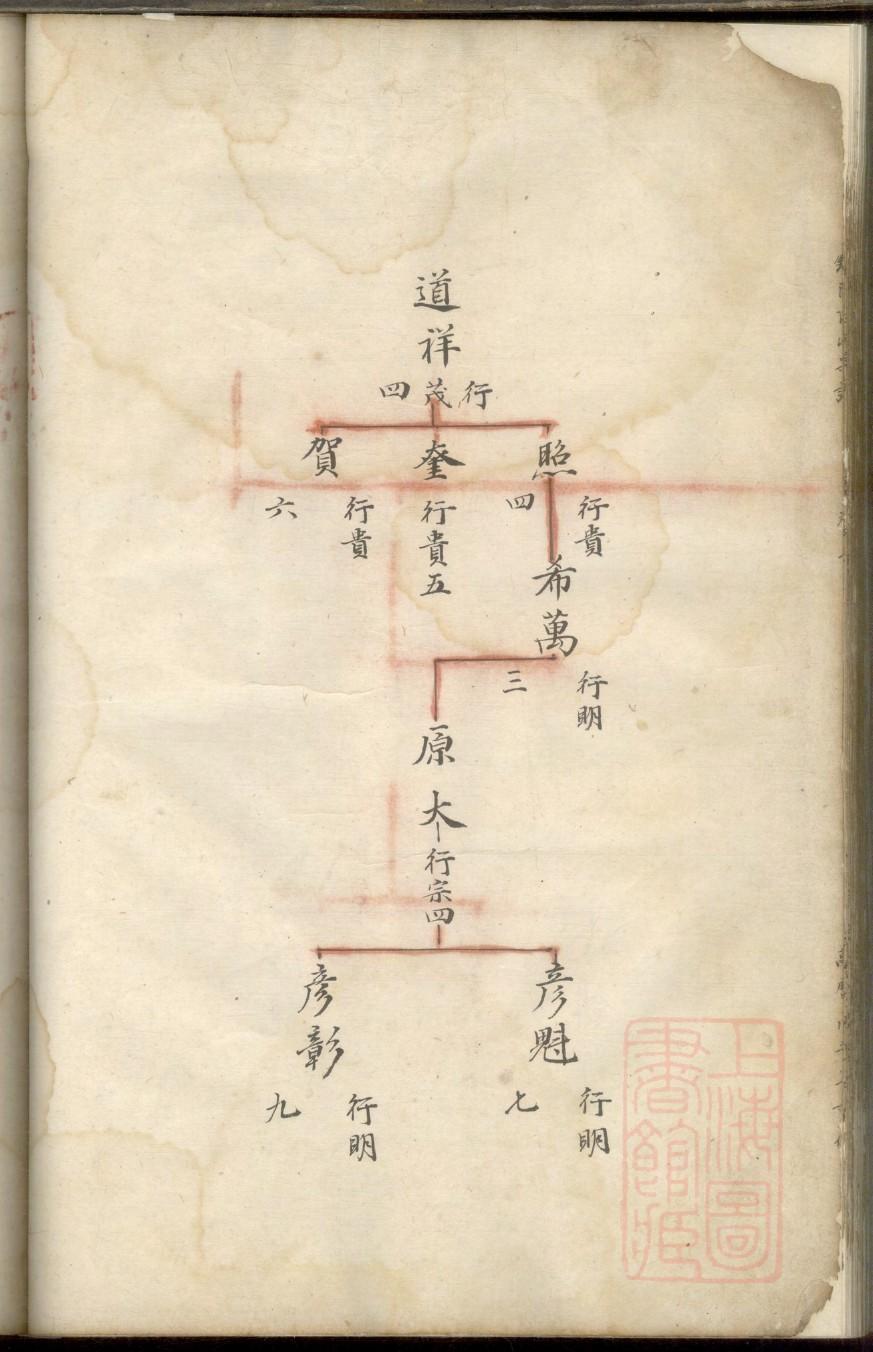 道祥
行茂四
照
行貴四
奎
行貴五
賀
行貴六
希萬
行明三
原大
行宗四
彦魁
行明七
彦彰
行明九
上海圖
書館藏